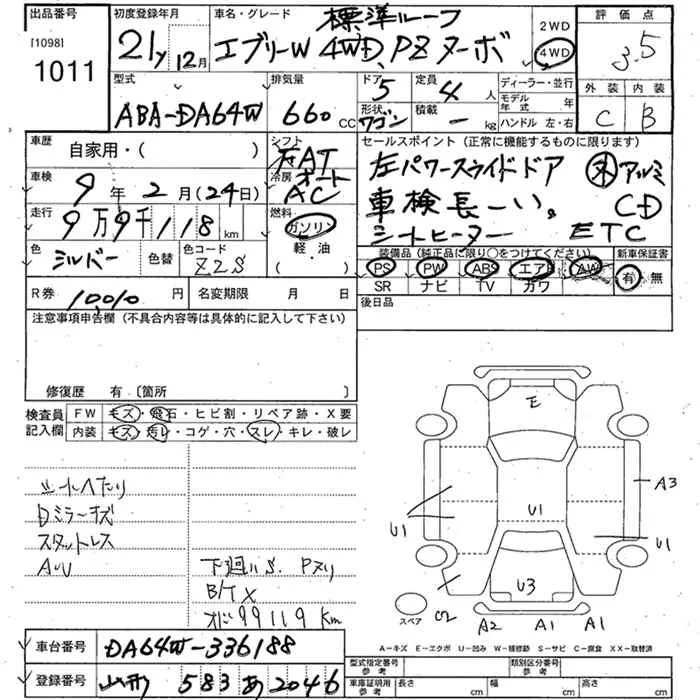 出品番号 初度登録年月 車名・グレード 標準ルーフ 2WD 評価点
[1098] 1011 21y 12月 エブリーW 4WD、PZターボ 4WD 3.5
型式 排気量 ドア 5 定員 4人 ディーラー・並行 外装 内装
ABA-DA64W 660 cc 形状 ワゴン 積載 - kg モデル年式 年 C B
ハンドル 左・右
車歴 自家用・( ) シフト AT セールスポイント(正常に機能するものに限ります)
車検 9年2月(24日) 冷房 オート AC 左パワースライドドア アルミ
走行 9万9千118km 燃料 ガソリン 車検長ーい。 CD
軽・油 シートヒーター ETC
色 シルバー 色替 色コード Z2S 装備品(純正品に限り○をつけてください) 新車保証書
PS PW ABS エアB AW 有・無
SR ナビ TV カワ
R券 10010円 名変期限 月 日 後日品
注意事項申告欄(不具合内容等は具体的に記入して下さい)
修復歴 有〔箇所
検査員記入欄 FW キズ・飛石・ヒビ割・リペア跡・X要
内装 キズ・汚レ・コゲ・穴・スレ・キレ・破レ
シートヘたり
Dミラーキズ
スタットレス
A・U
下廻りS、Pヌリ
B/TX
オド99119Km
E
A3
U1
U1 U1
U3
C2 A2 A1 A1
スペア
A-キズ E-エクボ U-凹み W-補修跡 S-サビ C-腐食 XX-取替済
車台番号 DA64W-336188
登録番号 山形 583 あ2046
型式指定番号 参考 類別区分番号 参考
車庫証明用 参考 長さ cm 幅 cm 高さ cm